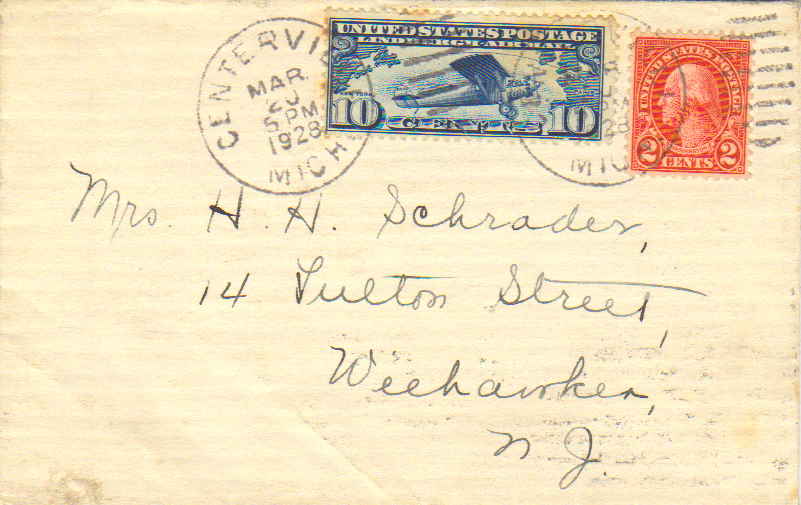 CENTERVI
MAR.
20
5 PM
1928
MICH
UNITED STATES POSTAGE
LINDBERGH AIR MAIL
10 CENTS 10
MICH
UNITED STATES POSTAGE
2 CENTS 2
Mrs. H. H. Schrader,
14 Fulton Street,
Weehawken,
N. J.